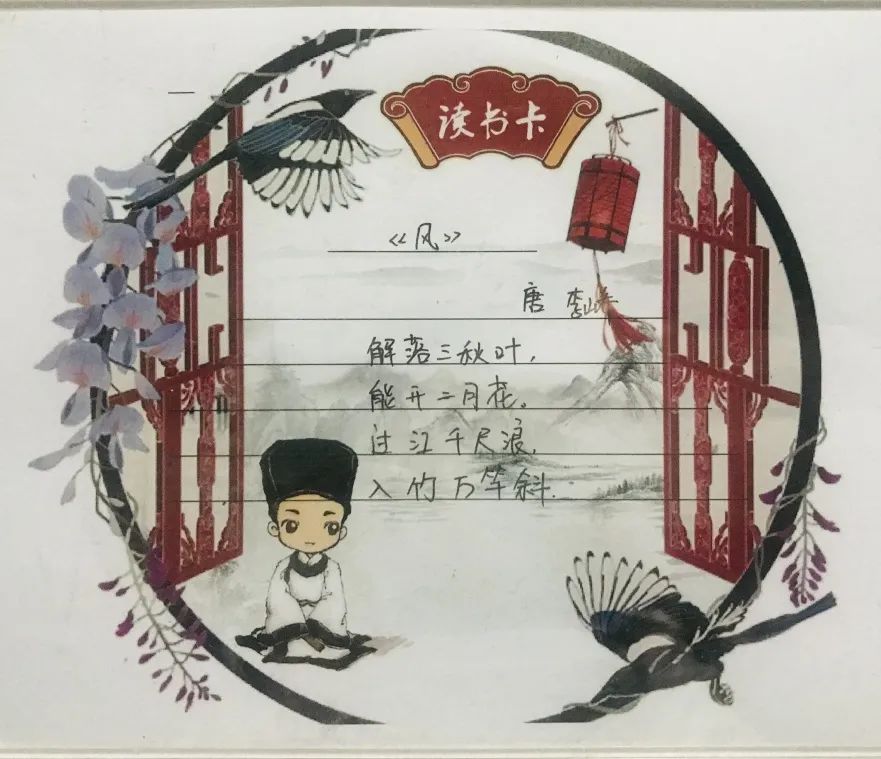 读书卡
《风》
唐 李峤
解落三秋叶，
能开二月花。
过江千尺浪，
入竹万竿斜.